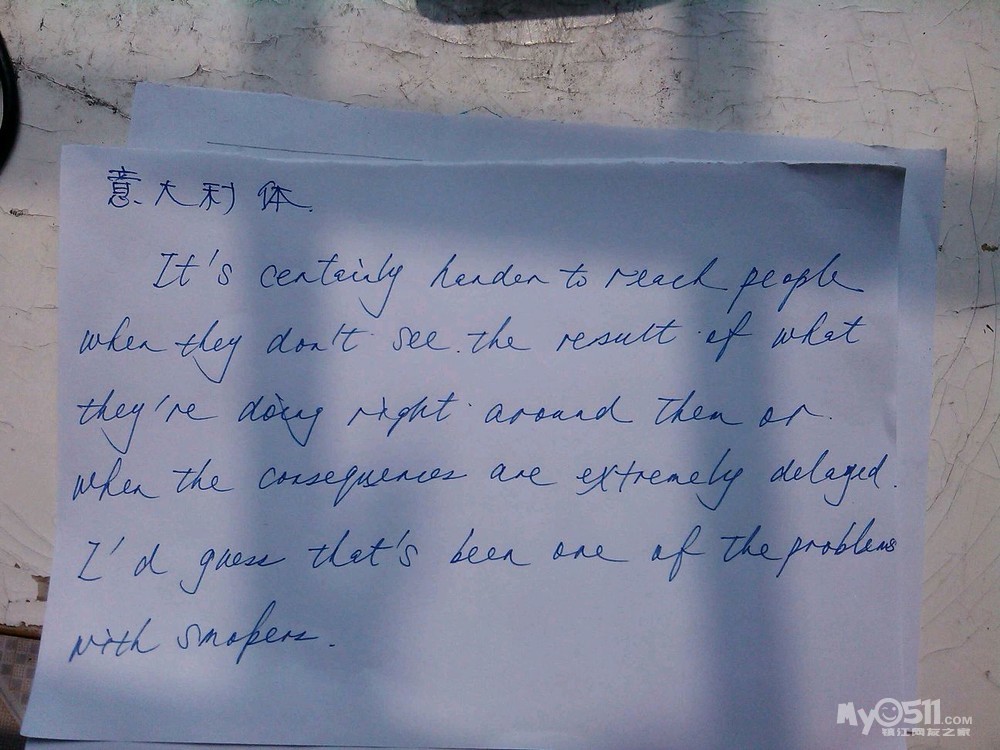 意大利体.
It's certainly harder to reach people
when they don't see the result of what
they're doing right around them or
when the consequences are extremely delayed.
I'd guess that's been one of the problems
with smokers.
My0511.COM
镇江网友之家